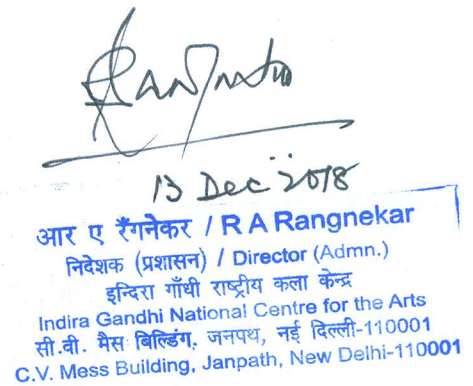 13 Dec 2018
आर ए रैंगनेकर / R A Rangnekar
निदेशक (प्रशासन) / Director (Admn.)
इन्दिरा गाँधी राष्ट्रीय कला केन्द्र
Indira Gandhi National Centre for the Arts
सी.वी. मैस बिल्डिंग, जनपथ, नई दिल्ली-110001
C.V. Mess Building, Janpath, New Delhi-110001